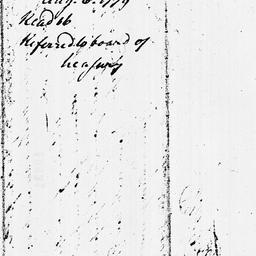 Aug. 6. 1779
Read 6
Referred to board of
treasury